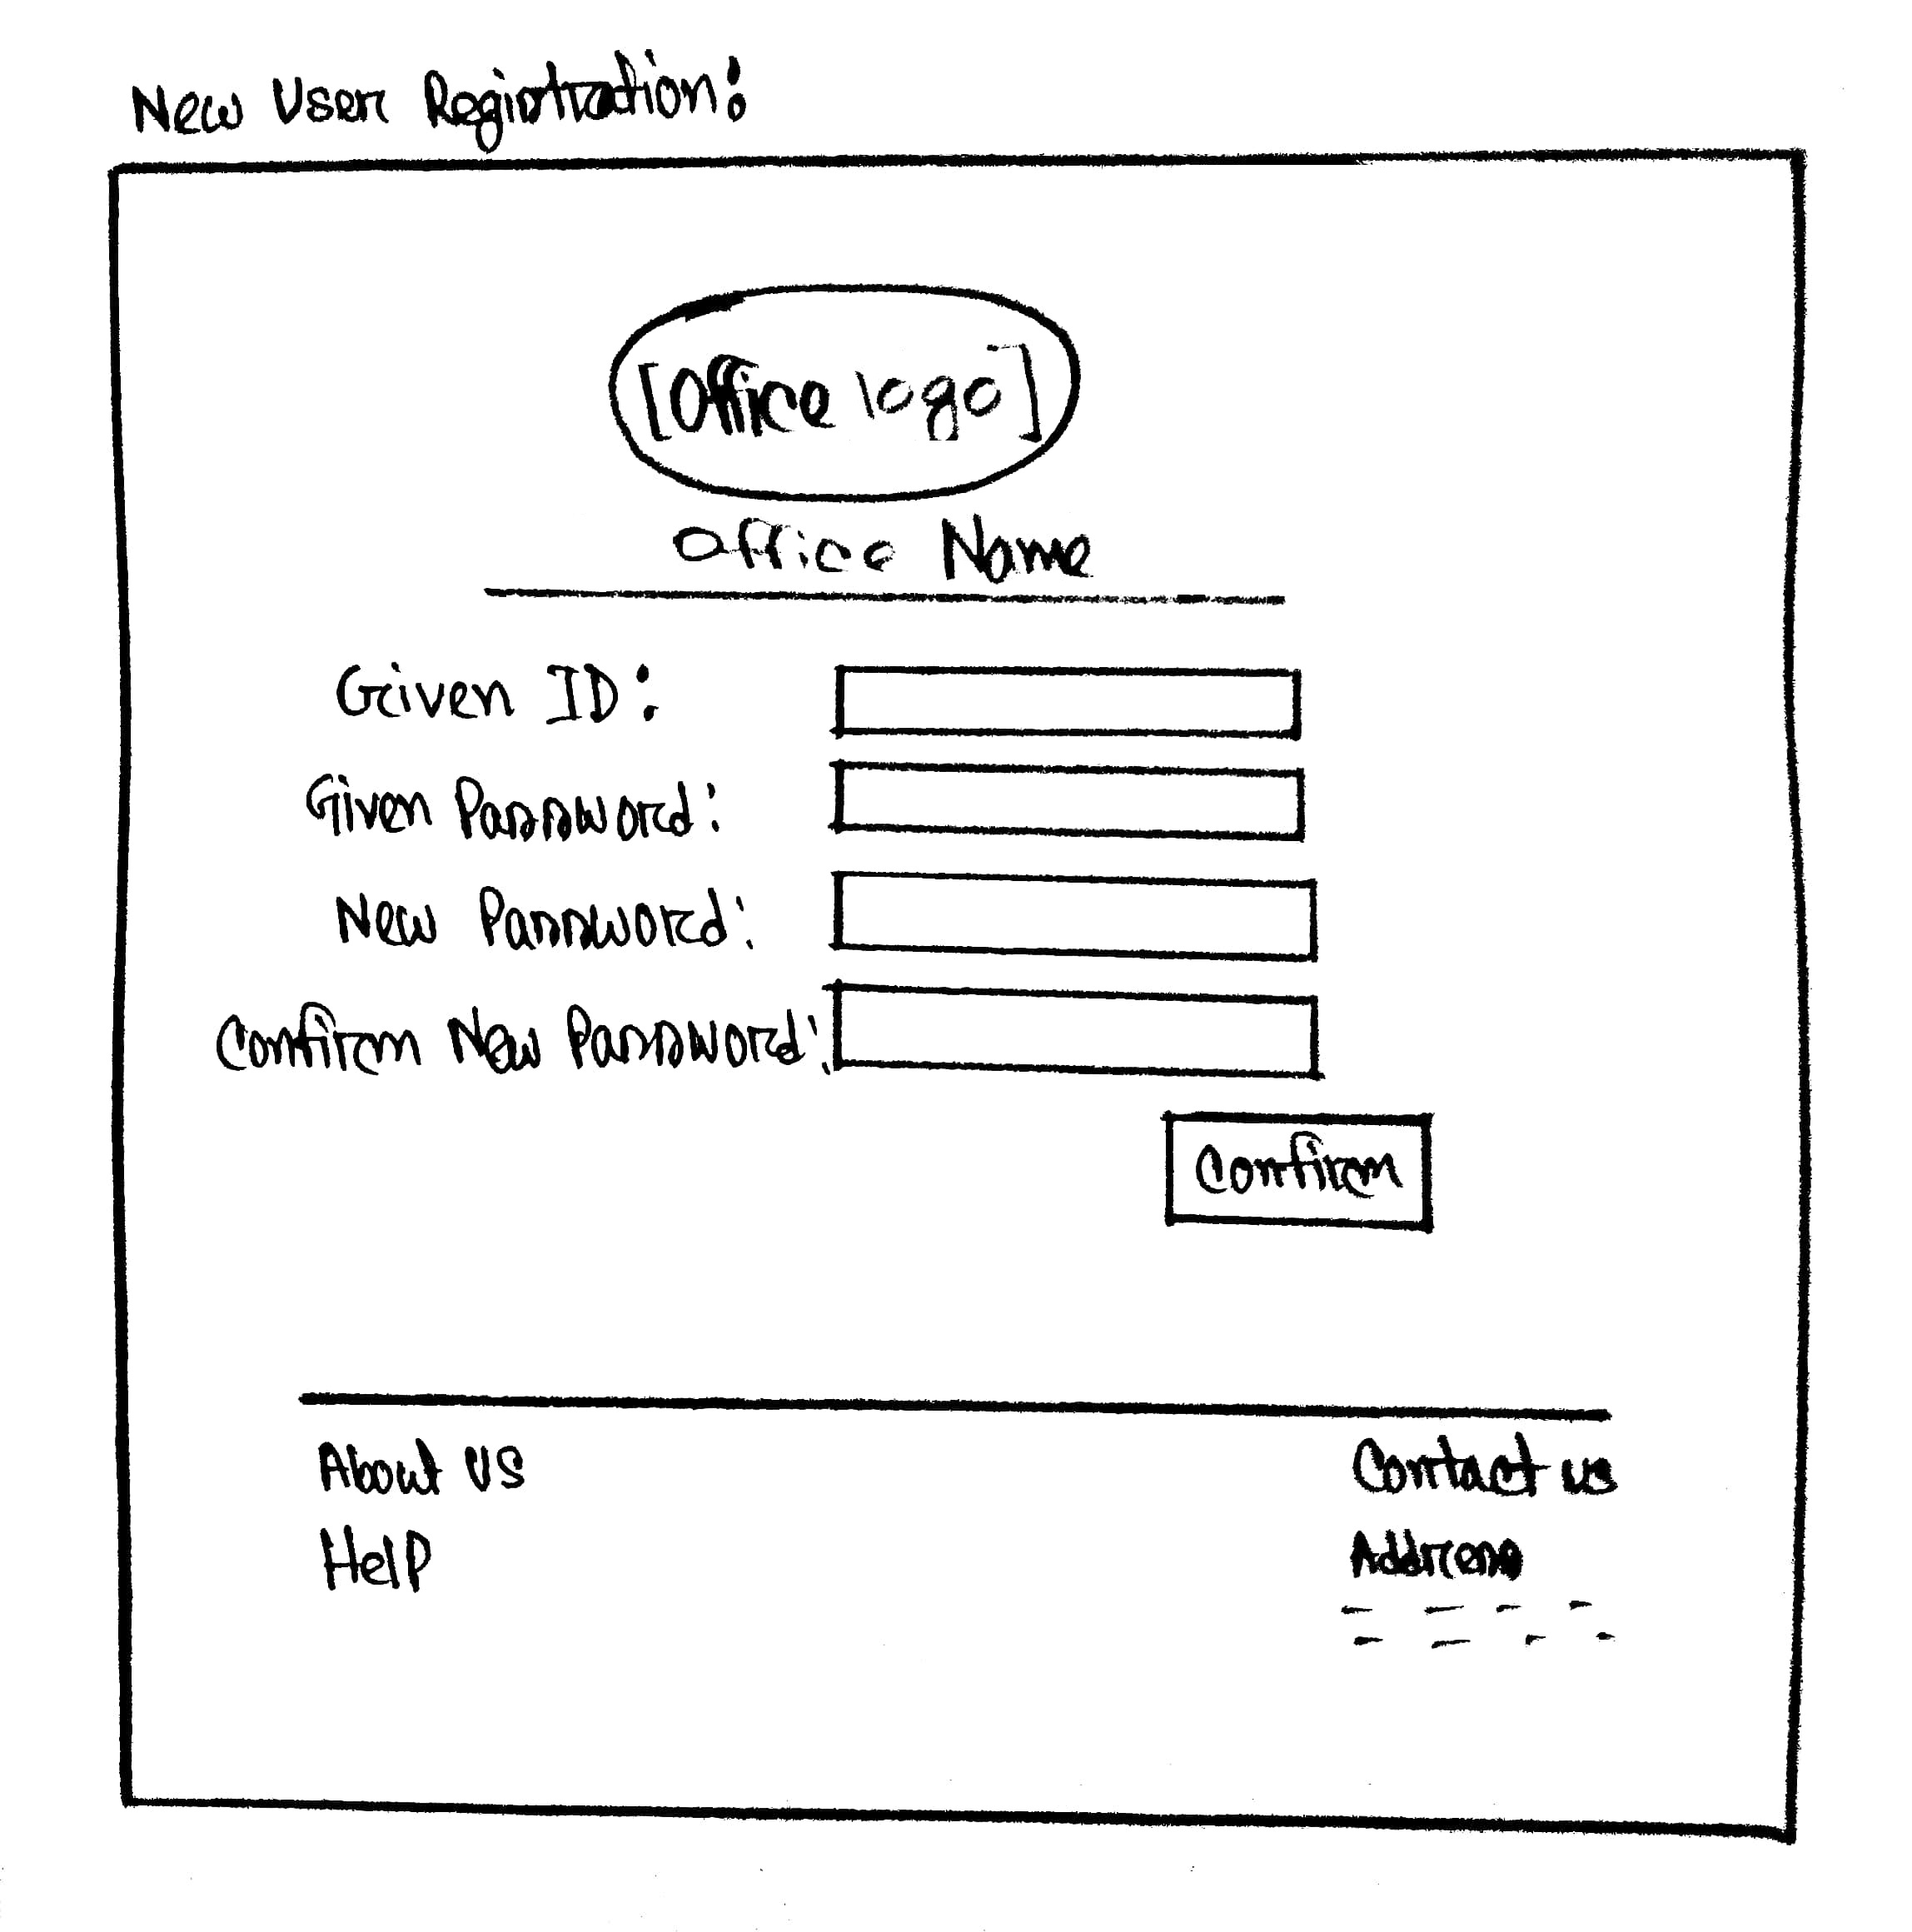 New User Registration:
[Office logo]
Office Name
Given ID:
Given Password:
New Password:
Confirm New Password:
Confirm
About Us
Contact us
Help
Address